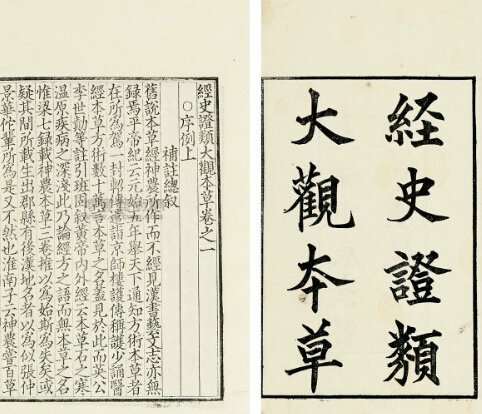 経史證類
大觀本草
經史證類大觀本草卷之一
○序例上
補註總叙
舊說本草經神農所作而不經見漢書藝文志亦無
錄焉平帝紀云元始五年舉天下通知方術本草者
在所為駕一封軺傳遣詣京師樓護傳稱護少誦醫
經本草方術數十萬言本草之名蓋見於此而英公
李世勣等註引班固敘黃帝內外經云本草石之寒
溫原疾病之深淺此乃論經方之語而無本草之名
惟梁七錄載神農本草三卷推以為始斯為失矣或
疑其間所載生出郡縣有後漢地名者以為似張仲
景華佗輩所為是又不然也淮南子云神農嘗百草